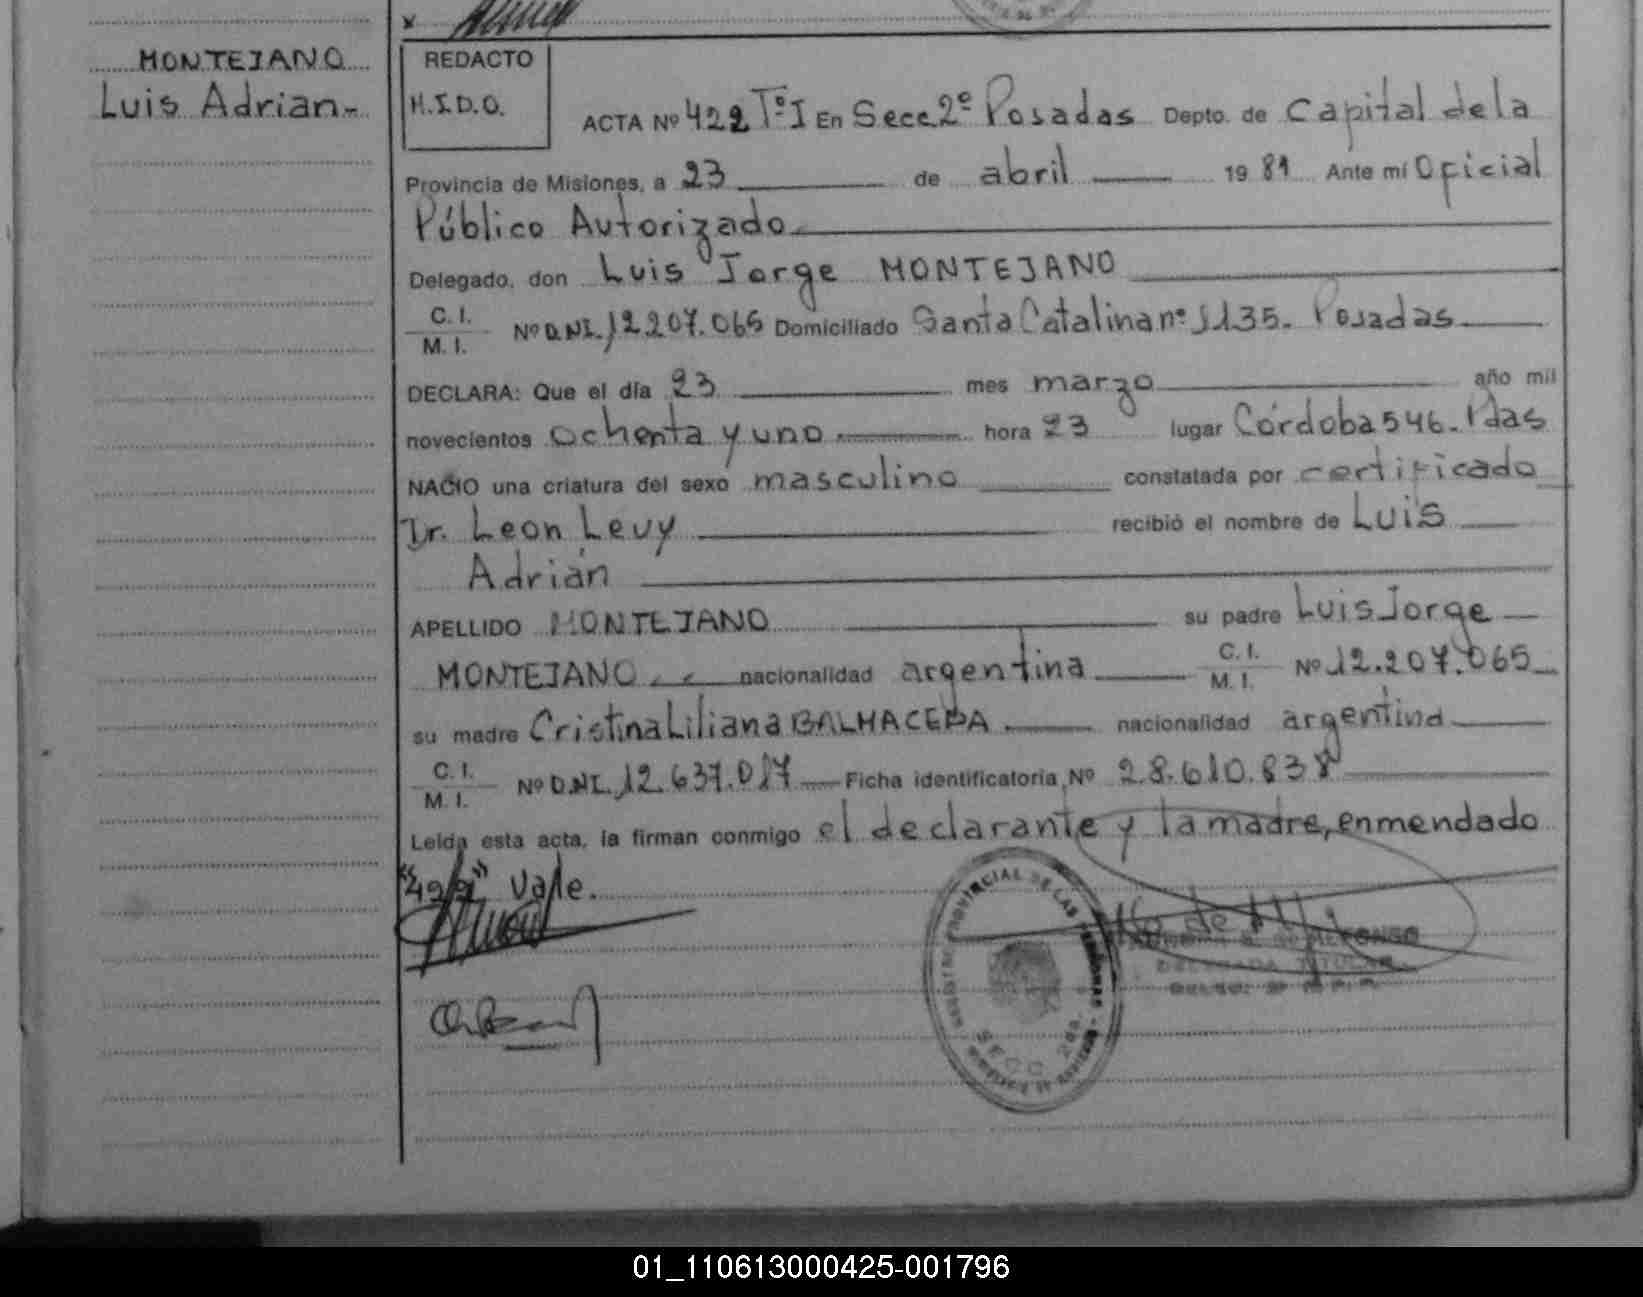 MONTEJANO
Luis Adrian-
REDACTO
H.I.D.O.
ACTA Nº 422 Tº I En Secc. 2º Posadas Depto. de Capital de la
Provincia de Misiones, a 23 de abril 1981 Ante mí Oficial
Público Autorizado
Delegado, don Luis Jorge MONTEJANO
C. I.
M. I. Nº D.N.I. 12.207.065 Domiciliado Santa Catalina nº 1135. Posadas
DECLARA: Que el día 23 mes marzo año mil
novecientos ochenta y uno hora 23 lugar Córdoba 546. Pdas
NACIO una criatura del sexo masculino constatada por certificado
Dr. Leon Levy recibió el nombre de Luis
Adrián
APELLIDO MONTEJANO su padre Luis Jorge
MONTEJANO nacionalidad argentina C. I.
M. I. Nº 12.207.065
su madre Cristina Liliana BALMACEDA nacionalidad argentina
C. I.
M. I. Nº D.N.I. 12.637.017 Ficha identificatoria Nº 28.610.838
Leída esta acta, la firman conmigo el declarante y la madre, enmendado
"422" Vale.
DELEGADA TITULAR
SECC 2da.
01_110613000425-001796